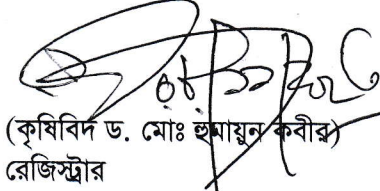 (কৃষিবিদ ড. মোঃ হুমায়ুন কবীর)
রেজিস্ট্রার